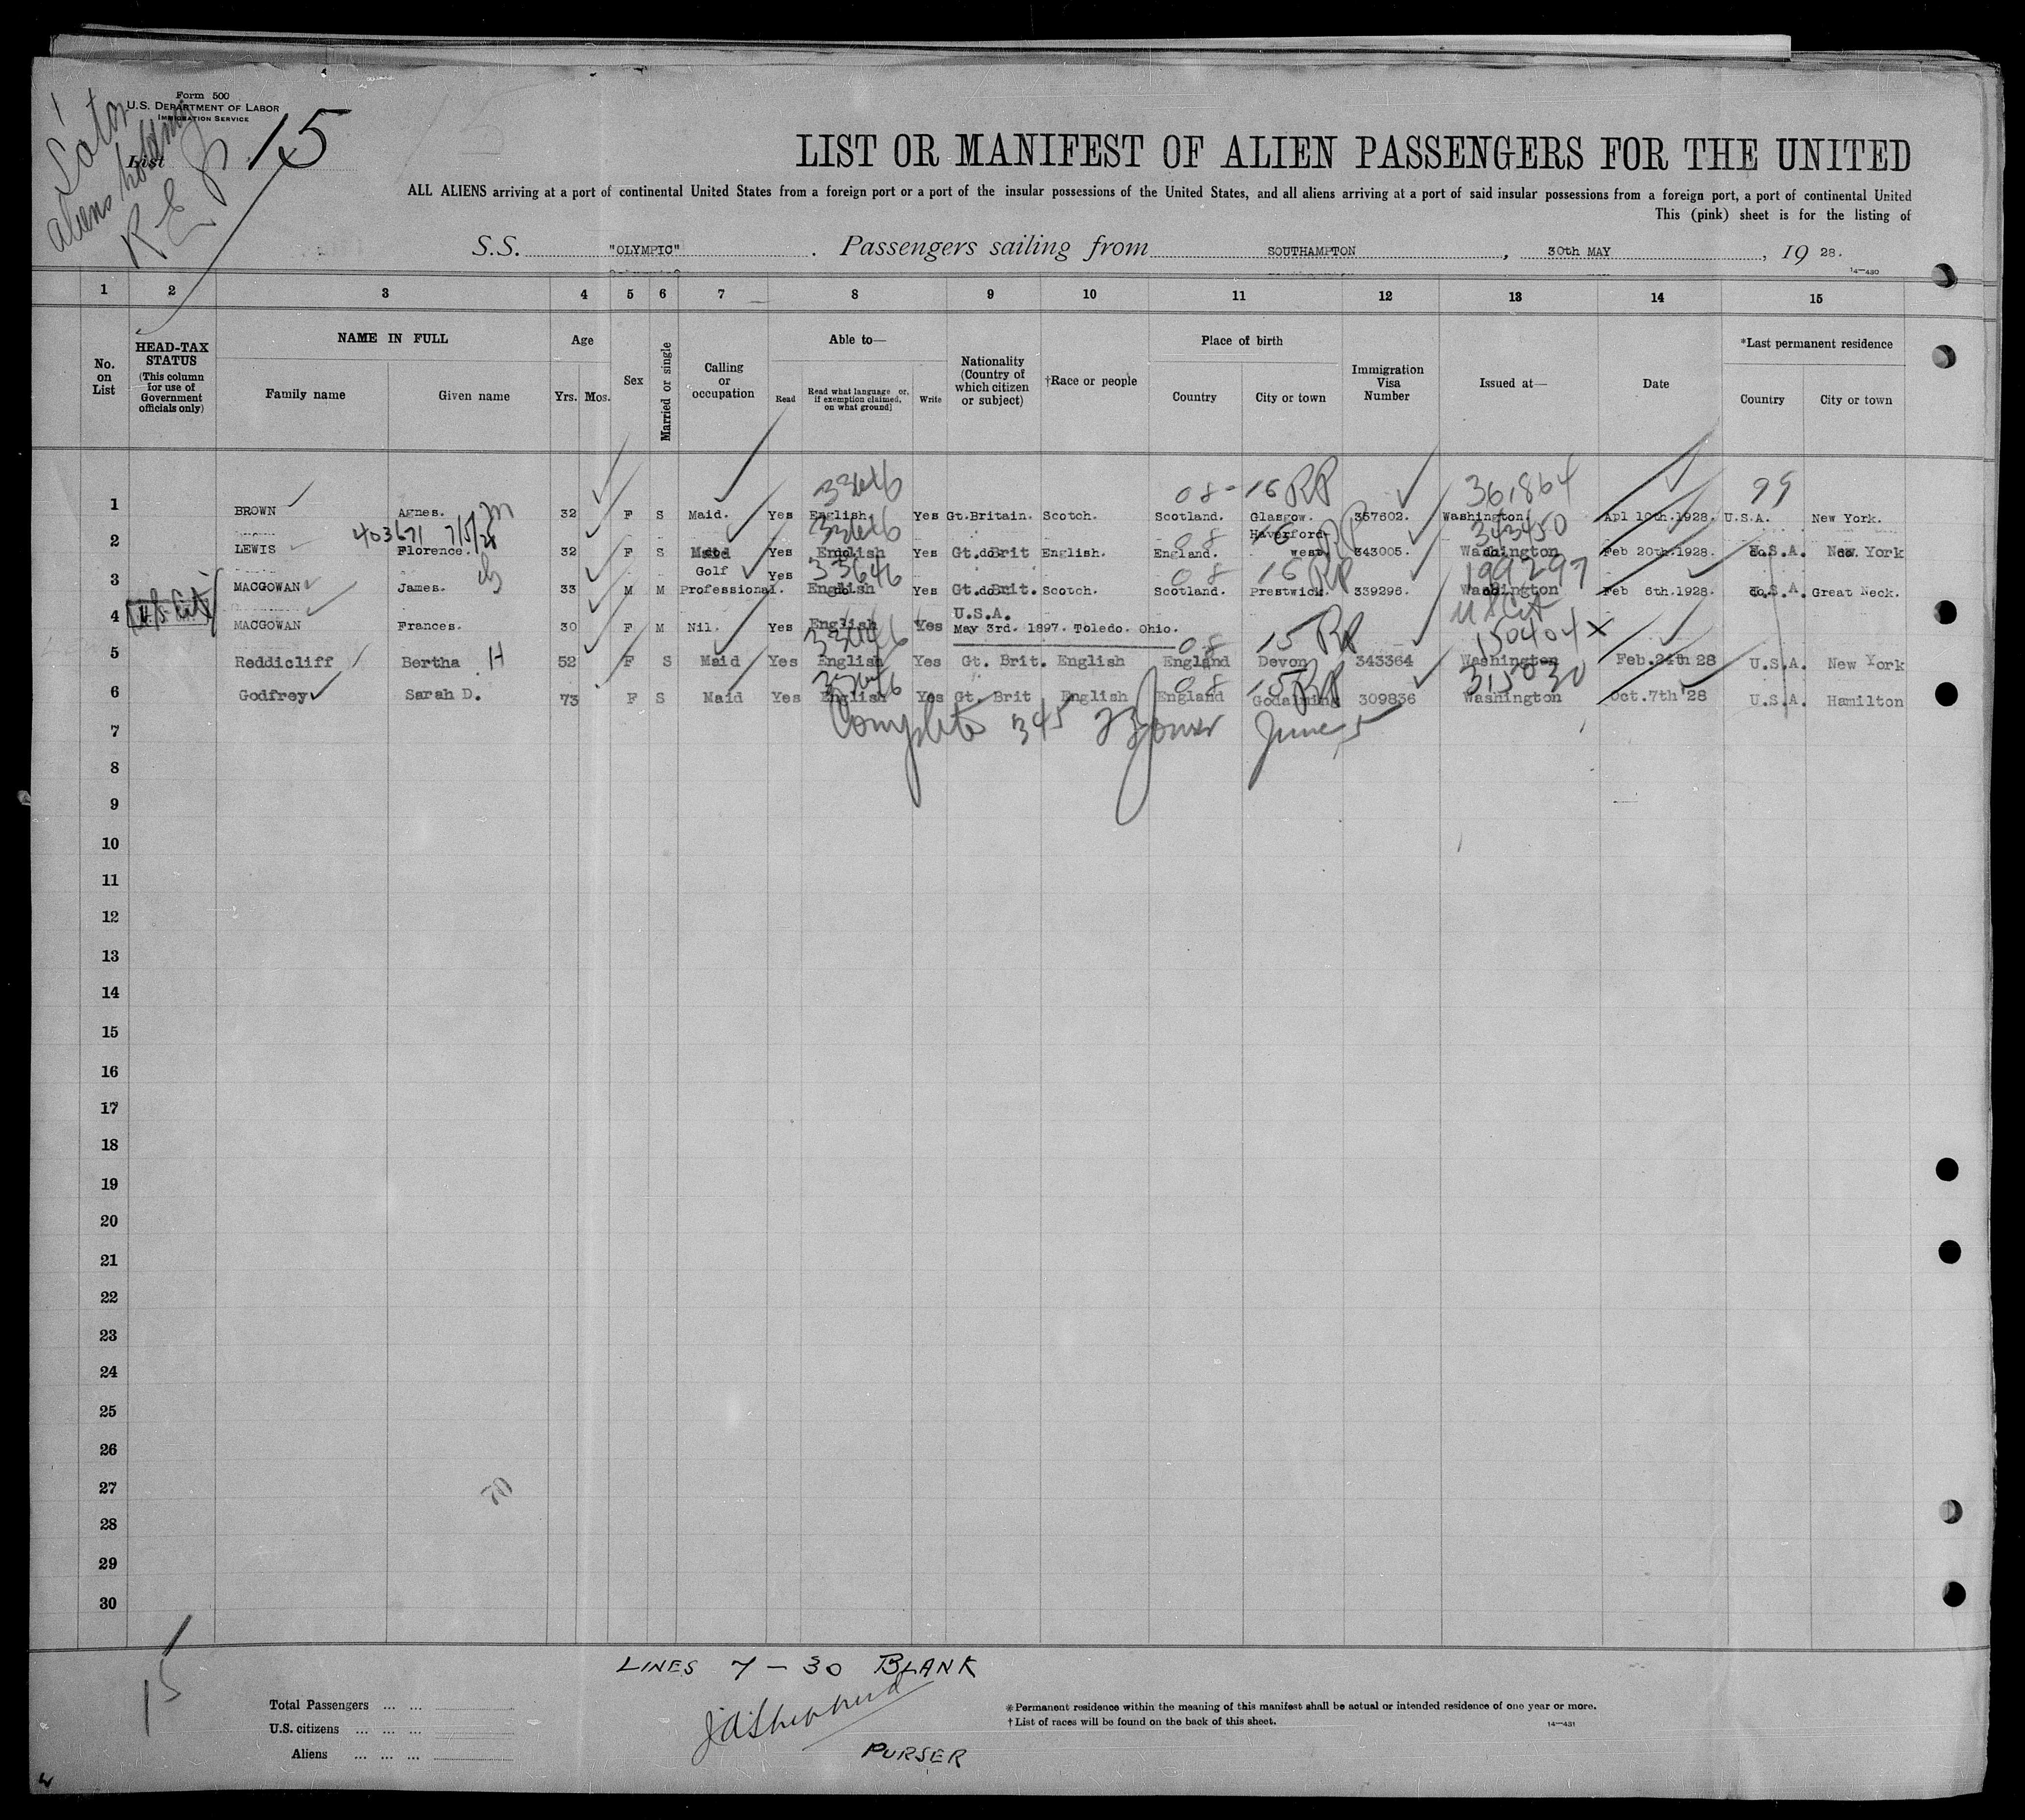 Form 500
U.S. DEPARTMENT OF LABOR
IMMIGRATION SERVICE
List 15
aliens holding
R E P
LIST OR MANIFEST OF ALIEN PASSENGERS FOR THE UNITED
ALL ALIENS arriving at a port of continental United States from a foreign port or a port of the insular possessions of the United States, and all aliens arriving at a port of said insular possessions from a foreign port, a port of continental United
This (pink) sheet is for the listing of
S.S. "OLYMPIC". Passengers sailing from SOUTHAMPTON, 30th MAY, 19 28.
14—430
1 2 3 4 5 6 7 8 9 10 11 12 13 14 15
No. on List
HEAD-TAX STATUS (This column for use of Government officials only)
NAME IN FULL
Family name Given name
Age
Yrs. Mos.
Sex
Married or single
Calling or occupation
Able to—
Read Read what language or, if exemption claimed, on what ground] Write
Nationality (Country of which citizen or subject)
†Race or people
Place of birth
Country City or town
Immigration Visa Number
Issued at—
Date
*Last permanent residence
Country City or town
33646 08-16 RP 361864 99
1 BROWN Agnes. 32 F S Maid. Yes English. Yes Gt.Britain. Scotch. Scotland. Glasgow. 357602. Washington. Apl 10th.1928. U.S.A. New York.
403671 7/5/28 33646 08 16 RP 343450
2 LEWIS Florence. 32 F S Maid Yes English Yes Gt. Brit English. England. Haverford-west. 343005. Washington Feb 20th.1928. U.S.A. New York
33646 08 16 RP 199297
3 MACGOWAN James. 33 M M Golf Professional. Yes English Yes Gt. Brit. Scotch. Scotland. Prestwick. 339296. Washington Feb 6th.1928. U.S.A. Great Neck.
U.S. Cit US Cit
4 MACGOWAN Frances. 30 F M Nil. Yes English Yes U.S.A. May 3rd. 1897. Toledo. Ohio.
33646 08 15 RP 150404 X
5 Reddicliff Bertha H 52 F S Maid Yes English Yes Gt. Brit. English England Devon 343364 Washington Feb.24th 28 U.S.A. New York
33646 08 15 RP 315030
6 Godfrey Sarah D. 73 F S Maid Yes English Yes Gt. Brit English England Godalming 309836 Washington Oct.7th 28 U.S.A. Hamilton
7 Complete 345 June 5
8
9
10
11
12
13
14
15
16
17
18
19
20
21
22
23
24
25
26
27
28
29
30
15
LINES 7 – 30 BLANK
Total Passengers ... ...
U.S. citizens ... ... ...
Aliens ... ... ...
PURSER
*Permanent residence within the meaning of this manifest shall be actual or intended residence of one year or more.
†List of races will be found on the back of this sheet.
14—431